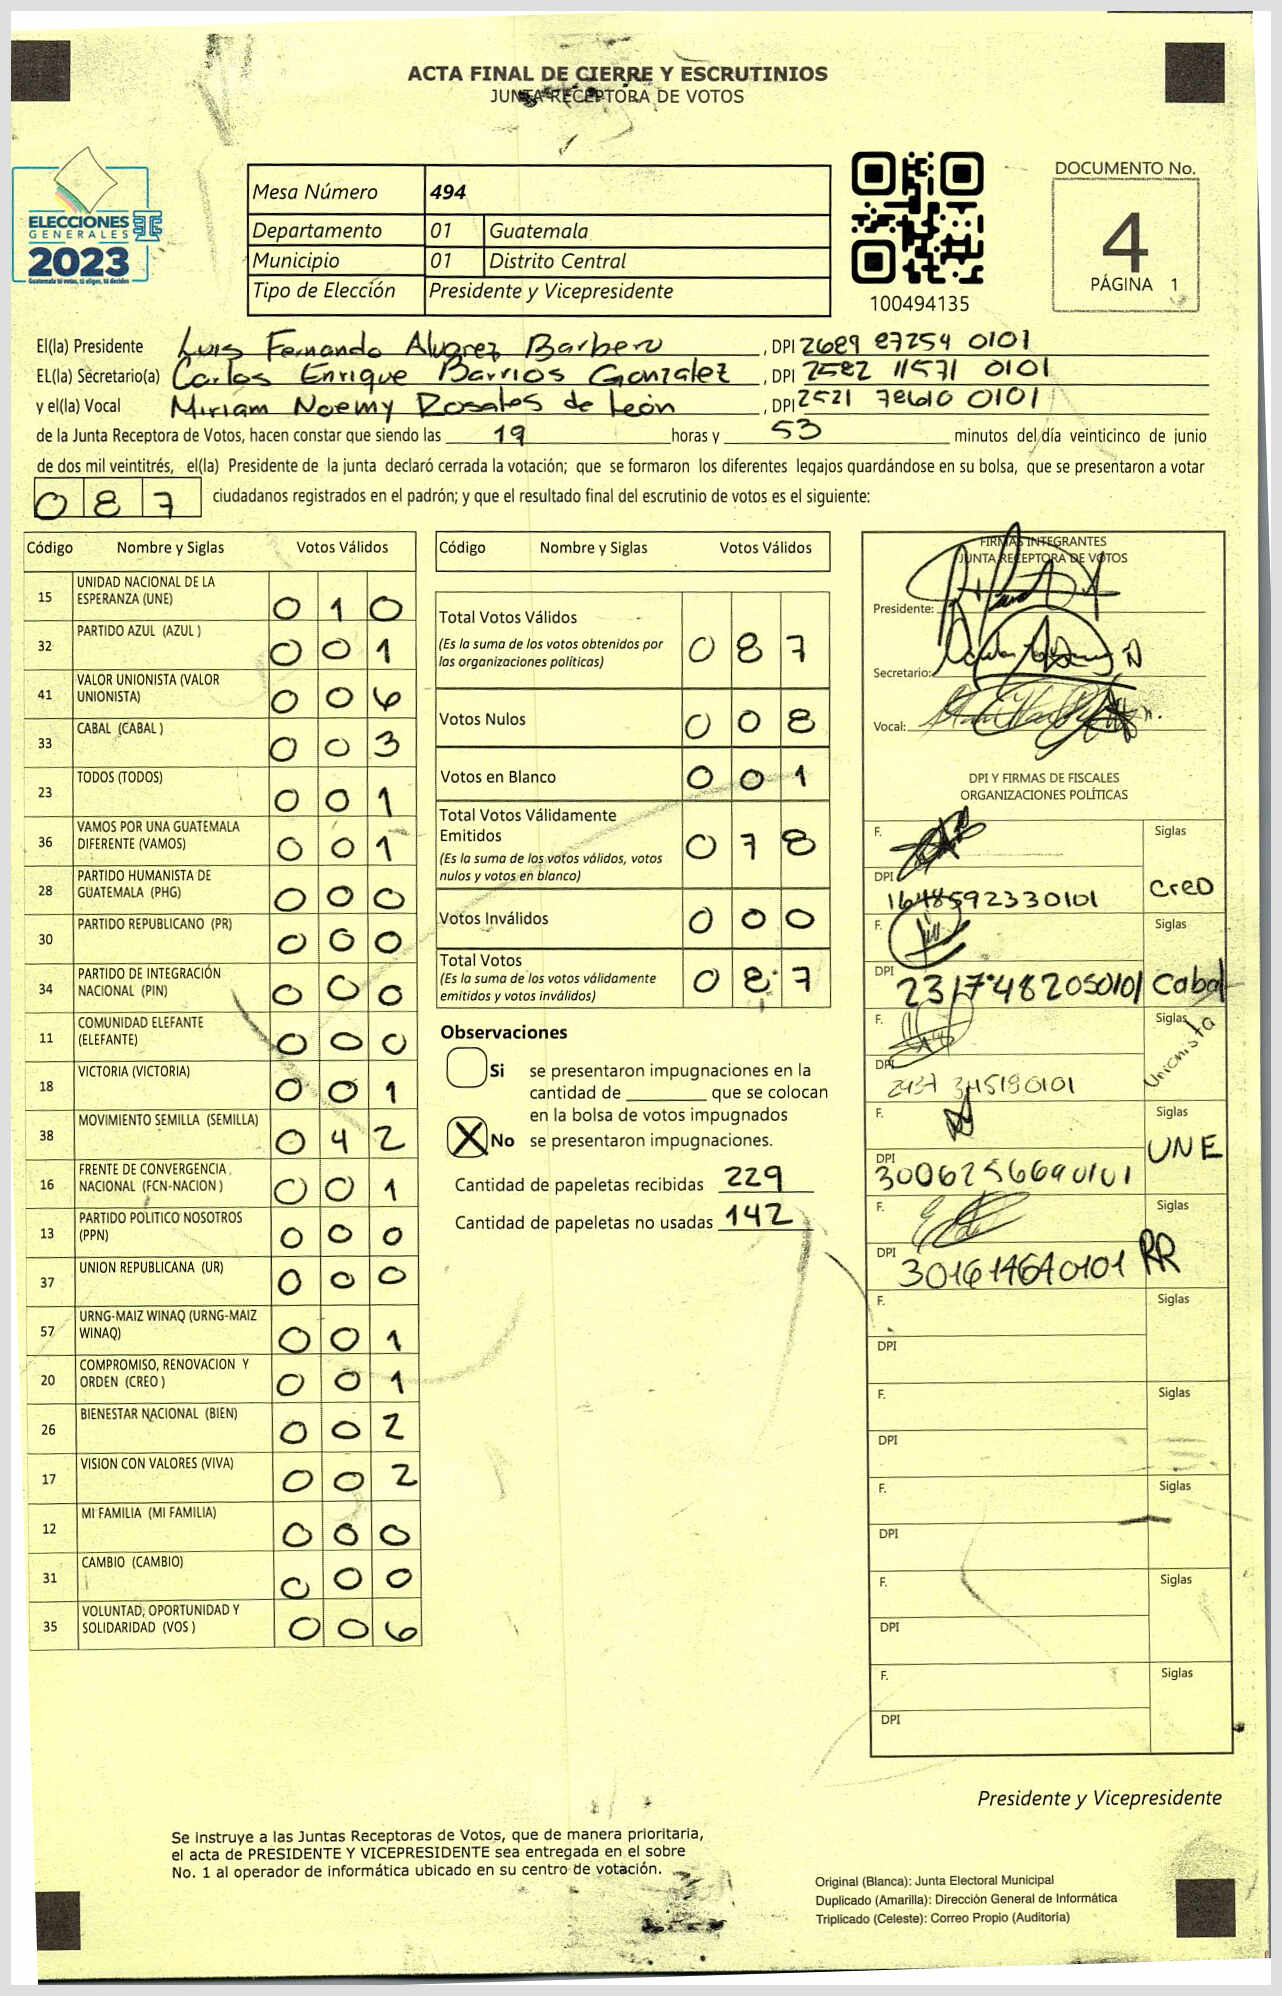 ACTA FINAL DE CIERRE Y ESCRUTINIOS
JUNTA RECEPTORA DE VOTOS
ELECCIONES
GENERALES
2023
Guatemala tú votas, tú eliges, tú decides
Mesa Número 494
Departamento 01 Guatemala
Municipio 01 Distrito Central
Tipo de Elección Presidente y Vicepresidente
100494135
DOCUMENTO No.
4
PÁGINA 1
El(la) Presidente Luis Fernando Alvarez Barbero, DPI 2689 87254 0101
EL(la) Secretario(a) Carlos Enrique Barrios Gonzalez, DPI 2582 11571 0101
y el(la) Vocal Miriam Noemy Rosales de León, DPI 2521 78610 0101
de la Junta Receptora de Votos, hacen constar que siendo las 19 horas y 53 minutos del día veinticinco de junio
de dos mil veintitrés, el(la) Presidente de la junta declaró cerrada la votación; que se formaron los diferentes legajos quardándose en su bolsa, que se presentaron a votar
087 ciudadanos registrados en el padrón; y que el resultado final del escrutinio de votos es el siguiente:
Código Nombre y Siglas Votos Válidos
15 UNIDAD NACIONAL DE LA ESPERANZA (UNE) 0 1 0
32 PARTIDO AZUL (AZUL ) 0 0 1
41 VALOR UNIONISTA (VALOR UNIONISTA) 0 0 6
33 CABAL (CABAL ) 0 0 3
23 TODOS (TODOS) 0 0 1
36 VAMOS POR UNA GUATEMALA DIFERENTE (VAMOS) 0 0 1
28 PARTIDO HUMANISTA DE GUATEMALA (PHG) 0 0 0
30 PARTIDO REPUBLICANO (PR) 0 0 0
34 PARTIDO DE INTEGRACIÓN NACIONAL (PIN) 0 0 0
11 COMUNIDAD ELEFANTE (ELEFANTE) 0 0 0
18 VICTORIA (VICTORIA) 0 0 1
38 MOVIMIENTO SEMILLA (SEMILLA) 0 4 2
16 FRENTE DE CONVERGENCIA NACIONAL (FCN-NACION ) 0 0 1
13 PARTIDO POLITICO NOSOTROS (PPN) 0 0 0
37 UNION REPUBLICANA (UR) 0 0 0
57 URNG-MAIZ WINAQ (URNG-MAIZ WINAQ) 0 0 1
20 COMPROMISO, RENOVACION Y ORDEN (CREO ) 0 0 1
26 BIENESTAR NACIONAL (BIEN) 0 0 2
17 VISION CON VALORES (VIVA) 0 0 2
12 MI FAMILIA (MI FAMILIA) 0 0 0
31 CAMBIO (CAMBIO) 0 0 0
35 VOLUNTAD, OPORTUNIDAD Y SOLIDARIDAD (VOS ) 0 0 6
Código Nombre y Siglas Votos Válidos
Total Votos Válidos 0 8 7
(Es la suma de los votos obtenidos por
las organizaciones políticas)
Votos Nulos 0 0 8
Votos en Blanco 0 0 1
Total Votos Válidamente
Emitidos 0 7 8
(Es la suma de los votos válidos, votos
nulos y votos en blanco)
Votos Inválidos 0 0 0
Total Votos 0 8 7
(Es la suma de los votos válidamente
emitidos y votos inválidos)
Observaciones
Si se presentaron impugnaciones en la
cantidad de ________ que se colocan
en la bolsa de votos impugnados
X No se presentaron impugnaciones.
Cantidad de papeletas recibidas 229
Cantidad de papeletas no usadas 142
FIRMAS INTEGRANTES
JUNTA RECEPTORA DE VOTOS
Presidente:
Secretario:
Vocal:
DPI Y FIRMAS DE FISCALES
ORGANIZACIONES POLÍTICAS
F. Siglas
DPI 1648592330101 CREO
F. Siglas
DPI 2317482050101 Cabal
F. Siglas
DPI Unionista
F. Siglas
DPI 3006256690101 UNE
F. Siglas
DPI 301614640101
F. Siglas
DPI
F. Siglas
DPI
F. Siglas
DPI
F. Siglas
DPI
F. Siglas
DPI
Presidente y Vicepresidente
Se instruye a las Juntas Receptoras de Votos, que de manera prioritaria,
el acta de PRESIDENTE Y VICEPRESIDENTE sea entregada en el sobre
No. 1 al operador de informática ubicado en su centro de votación.
Original (Blanca): Junta Electoral Municipal
Duplicado (Amarilla): Dirección General de Informática
Triplicado (Celeste): Correo Propio (Auditoría)